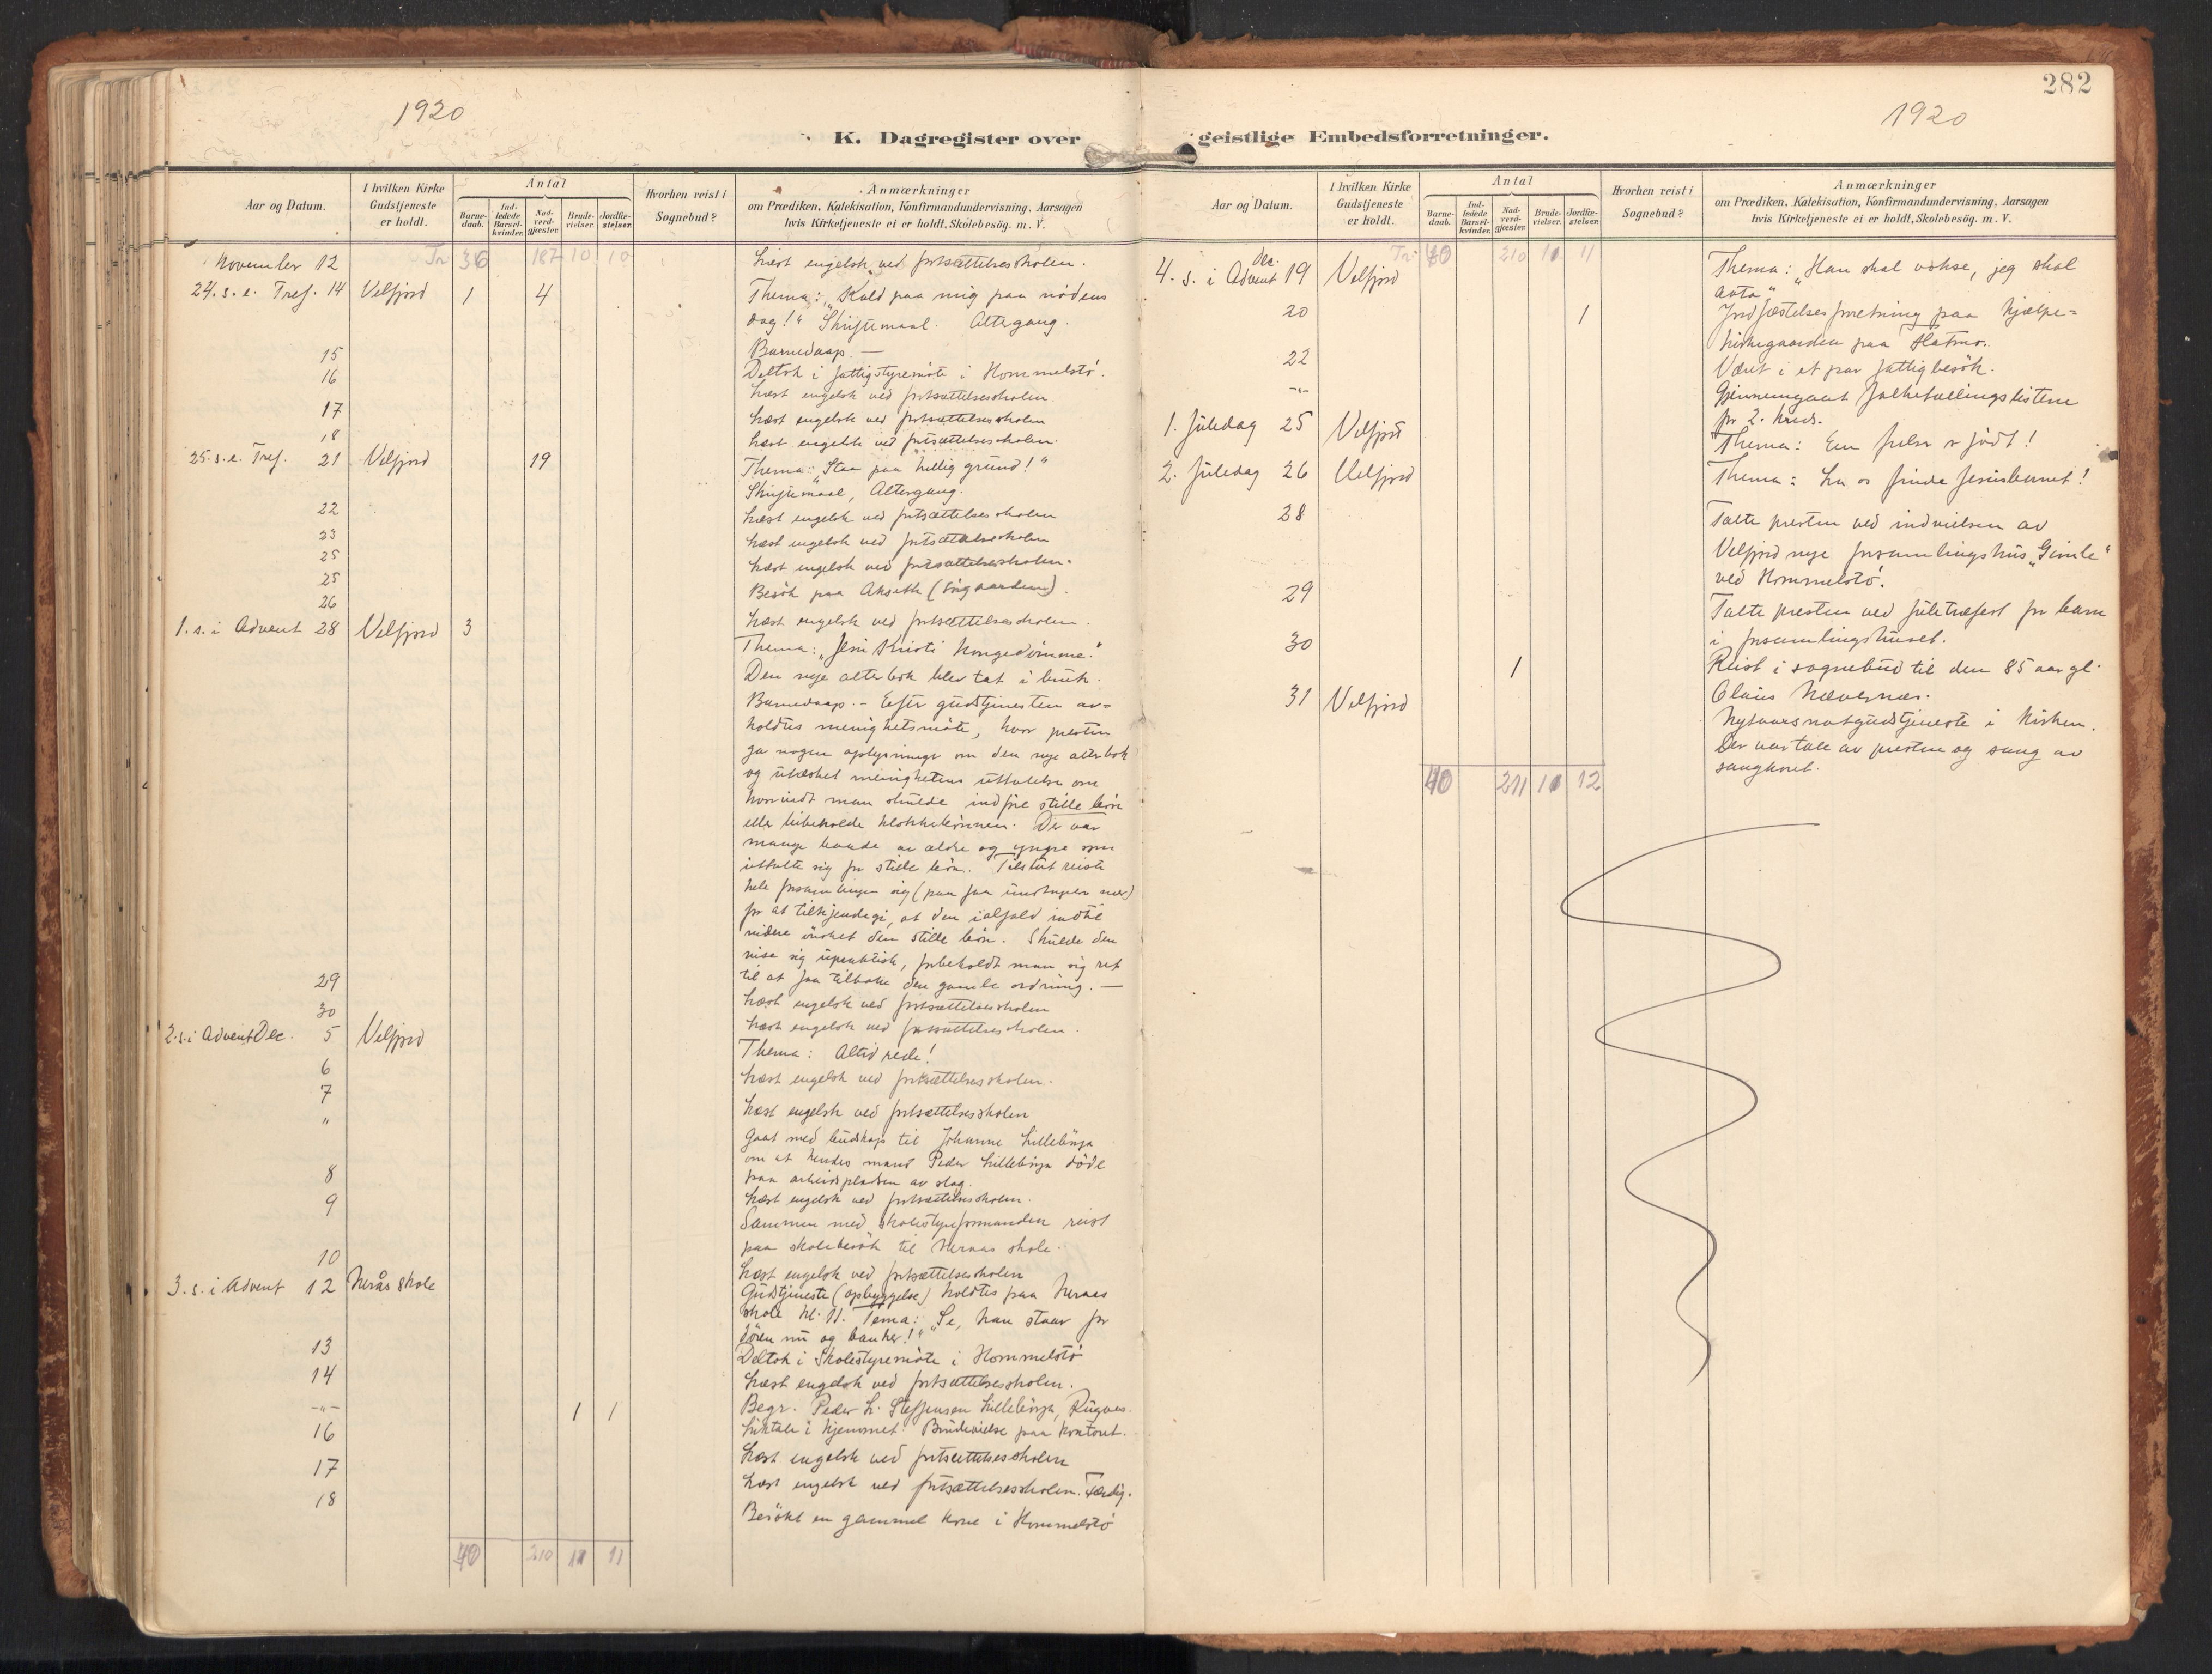 282
1920
1920
K. Dagregister over geistlige Embedsforretninger.
Aar og Datum.
I hvilken Kirke Gudstjeneste er holdt.
Antal
Barne-daab.
Ind-ledede Barsel-kvinder.
Nad-verd-gjæster.
Brude-vielser.
Jordfæ-stelser.
Hvorhen reist i Sognebud?
Anmærkninger
om Prædiken, Katekisation, Konfirmandundervisning, Aarsagen
hvis Kirketjeneste ei er holdt, Skolebesøg. m. V.
November 12 Tr. 36 187 10 10 Læst engelsk ved fortsættelsesskolen.
24. s. e. Tref. 14 Velfjord 1 4 Thema: "Kald paa mig paa nødens
dag!" Skriftemaal. Altergang.
Barnedaap. —
15 Deltok i fattigstyremøte i Hommelstø.
16 Læst engelsk ved fortsættelsesskolen.
17 Læst engelsk ved fortsættelsesskolen
18 Læst engelsk ved fortsættelsesskolen.
25. s. e. Tref. 21 Velfjord 19 Thema: "Staa paa hellig grund!"
Skriftemaal, Altergang.
22 Læst engelsk ved fortsættelsesskolen
23 Læst engelsk ved fortsættelsesskolen
25 Læst engelsk ved fortsættelsesskolen.
25 Besøk paa Akseth
26 Læst engelsk ved fortsættelsesskolen.
1. s. i Advent 28 Velfjord 3
Thema: "Jesu Kristi kongedømme."
Den nye alterbok blev tat i bruk.
Barnedaap. - Efter gudstjenesten av=
holdtes menighetsmøte, hvor presten
ga nogen oplysninger om den nye alterbok
og utæsket menighetens uttalelse om
hvorvidt man skulde indføre stille bøn
eller bibeholde klokkebønnen. Der var
mange baade av ældre og yngre som
uttalte sig for stille bøn. Tilslut reiste
hele forsamlingen sig (paa faa undtagelser nær)
for at tilkjendegi, at den ialfald indtil
videre ønsket den stille bøn. Skulde den
vise sig upraktisk, forbeholdt man sig ret
til at faa tilbake den gamle ordning. —
29 Læst engelsk ved fortsættelsesskolen
30 Læst engelsk ved fortsættelsesskolen.
2. s. i Advent Dec. 5 Velfjord Thema: Altid rede!
6 Læst engelsk ved fortsættelsesskolen.
7 Læst engelsk ved fortsættelsesskolen
" Gaat med budskap til Johanne Lillebørja
om at hendes mand Peder Lillebørja døde
paa arbeidspladsen av slag.
8 Læst engelsk ved fortsættelsesskolen.
9 Sammen med skolestyreformanden reist
paa skolebesøk til Neraas skole.
10 Læst engelsk ved fortsættelsesskolen
3. s. i Advent 12 Nerås skole Gudstjeneste (opbyggelse) holdtes paa Neraas
skole kl. 11. Tema: "Se, han staar for
døren nu og banker!"
13 Deltok i Skolestyremøte i Hommelstø
14 Læst engelsk ved fortsættelsesskolen.
-"- 1 1 Begr. Peder L. Steffensen Lillebørja,
Liktale i hjemmet. Brudevielse paa kontoret.
16 Læst engelsk ved fortsættelsesskolen
17 Læst engelsk ved fortsættelsesskolen. Færdig.
18 Besøkt en gammel kone i Hommelstø
40 210 11 11
Aar og Datum.
I hvilken Kirke Gudstjeneste er holdt.
Antal
Barne-daab.
Ind-ledede Barsel-kvinder.
Nad-verd-gjæster.
Brude-vielser.
Jordfæ-stelser.
Hvorhen reist i Sognebud?
Anmærkninger
om Prædiken, Katekisation, Konfirmandundervisning, Aarsagen
hvis Kirketjeneste ei er holdt, Skolebesøg. m. V.
Tr. 40 210 11 11
4. s. i Advent Dec. 19 Velfjord Thema: "Han skal vokse, jeg skal
avta"
20 1 Jordfæstelsesforretning paa hjælpe=
kirkegaarden paa
22 Været i et par fattigbesøk.
-"- Gjennemgaat folketællingslistene
for 2. kreds.
1. Juledag 25 Velfjord Thema: En frelser er født!
2. Juledag 26 Velfjord Thema: La os finde Jesusbarnet!
28 Talte presten ved indvielsen av
Velfjord nye forsamlingshus "Gimle"
ved Hommelstø.
29 Talte presten ved juletræfest for barn
i forsamlingshuset.
30 1 Reist i sognebud til den 85 aar gl.
Claus Nævernes.
31 Velfjord Nytaarsnatgudstjeneste i kirken.
Der var tale av presten og sang av
sangkoret.
40 211 11 12